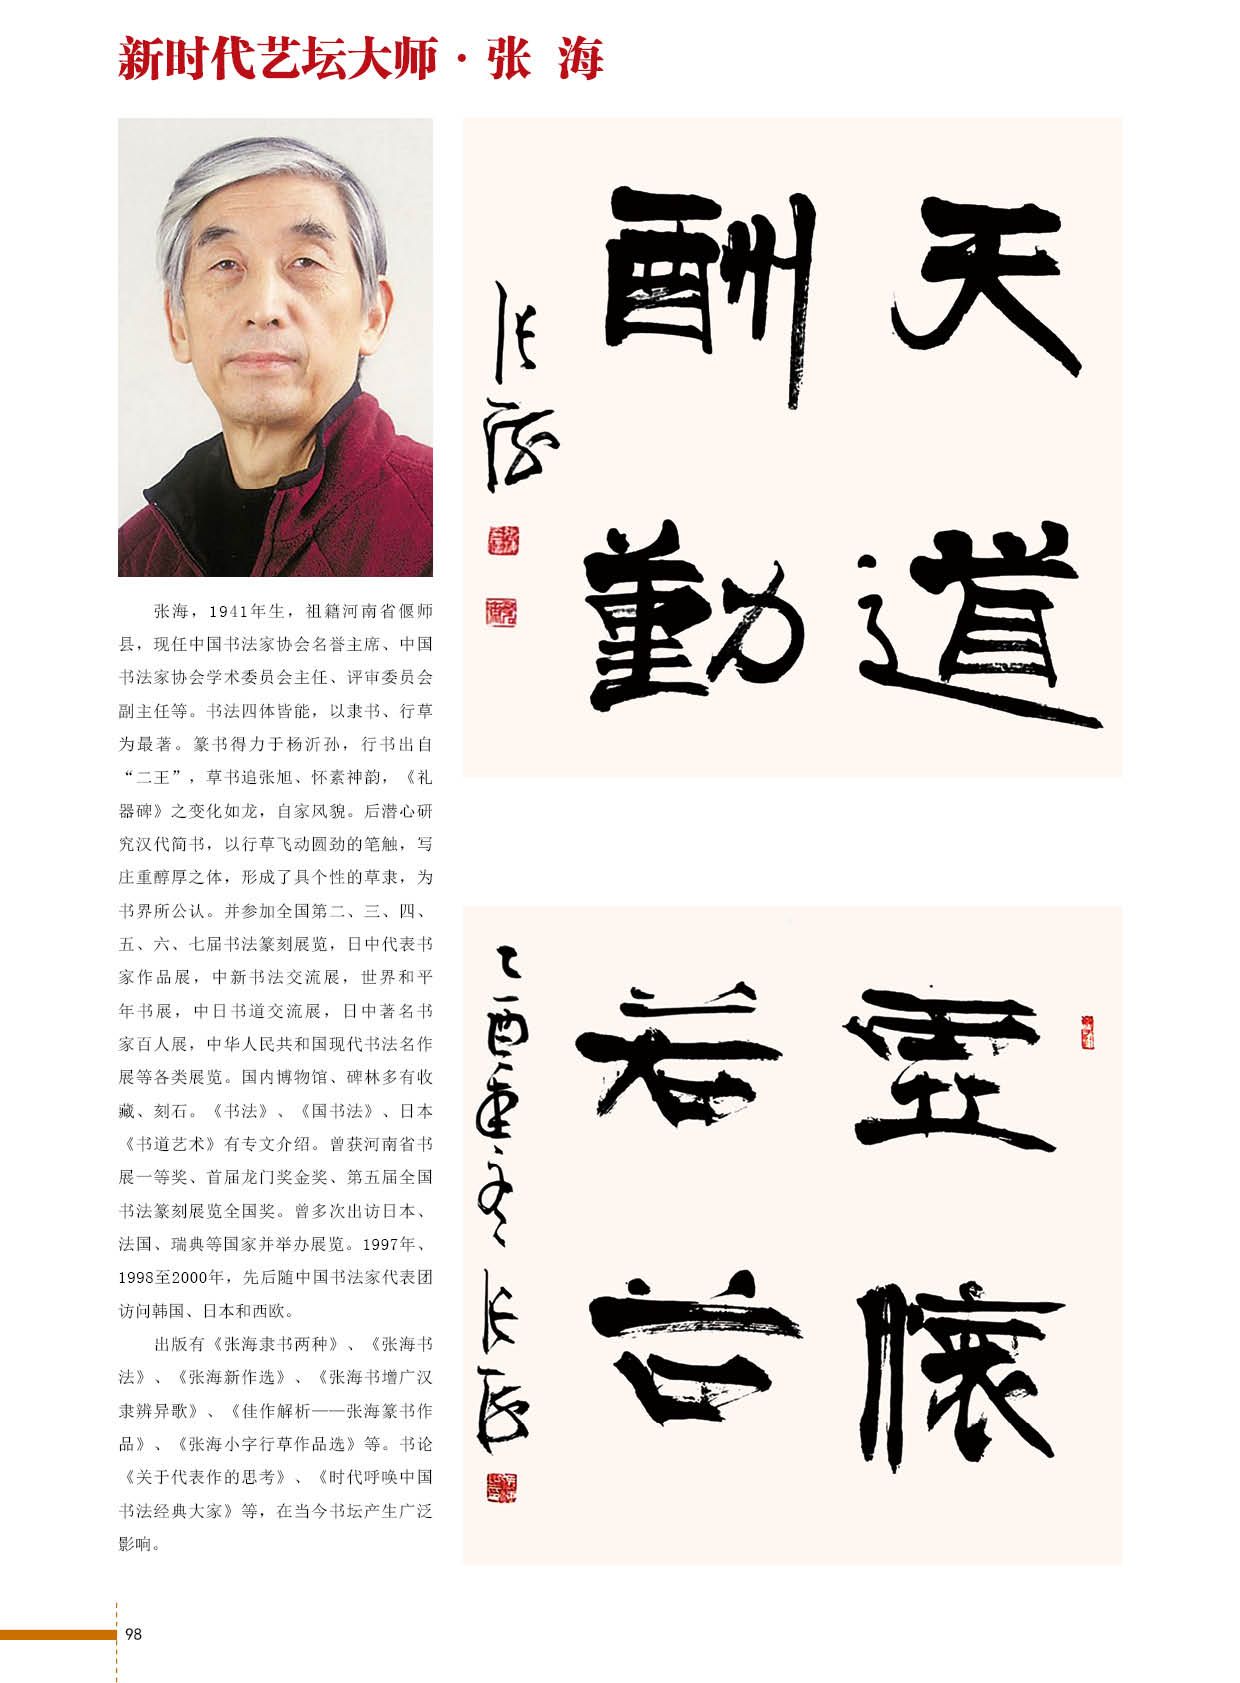 新时代艺坛大师·张 海
张海，1941年生，祖籍河南省偃师
县，现任中国书法家协会名誉主席、中国
书法家协会学术委员会主任、评审委员会
副主任等。书法四体皆能，以隶书、行草
为最著。篆书得力于杨沂孙，行书出自
“二王”，草书追张旭、怀素神韵，《礼
器碑》之变化如龙，自家风貌。后潜心研
究汉代简书，以行草飞动圆劲的笔触，写
庄重醇厚之体，形成了具个性的草隶，为
书界所公认。并参加全国第二、三、四、
五、六、七届书法篆刻展览，日中代表书
家作品展，中新书法交流展，世界和平
年书展，中日书道交流展，日中著名书
家百人展，中华人民共和国现代书法名作
展等各类展览。国内博物馆、碑林多有收
藏、刻石。《书法》、《国书法》、日本
《书道艺术》有专文介绍。曾获河南省书
展一等奖、首届龙门奖金奖、第五届全国
书法篆刻展览全国奖。曾多次出访日本、
法国、瑞典等国家并举办展览。1997年、
1998至2000年，先后随中国书法家代表团
访问韩国、日本和西欧。
出版有《张海隶书两种》、《张海书
法》、《张海新作选》、《张海书增广汉
隶辨异歌》、《佳作解析——张海篆书作
品》、《张海小字行草作品选》等。书论
《关于代表作的思考》、《时代呼唤中国
书法经典大家》等，在当今书坛产生广泛
影响。
天道
酬勤
张海
灵怀
若谷
乙酉重冬
张海
98